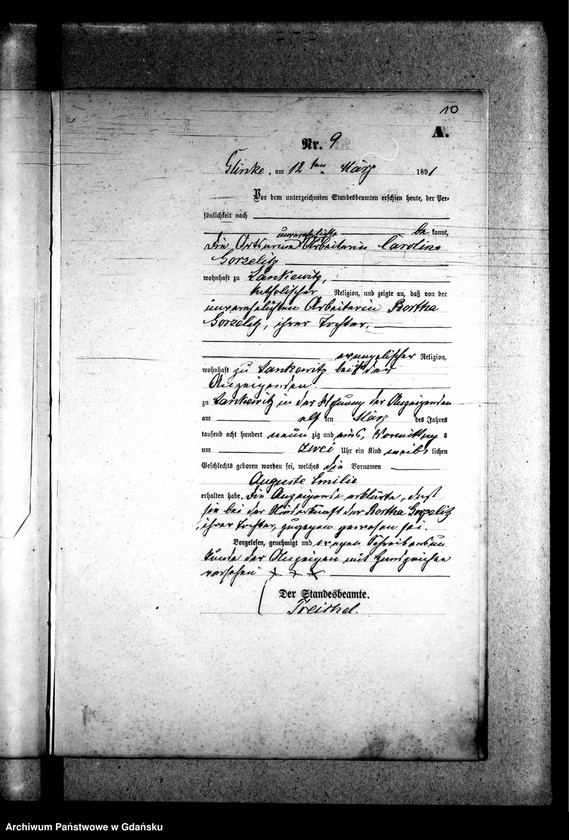 10
A.
Nr. 9
Glinke, am 12 ten März 1891
Vor dem unterzeichneten Standesbeamten erschien heute, der Per-
sönlichkeit nach
unverehelichte be kannt,
die Ortsarme Arbeiterin Caroline
Gorzelitz
wohnhaft zu Lankewitz,
katholischer Religion, und zeigte an, daß von der
unverehelichten Arbeiterin Bertha
Gorzelitz, ihrer Tochter,
evangelischer Religion,
wohnhaft zu Lankewitz bei der
Anzeigenden
zu Lankewitz in der Wohnung der Anzeigenden
am elf ten März des Jahres
tausend acht hundert neun zig und eins, Vormittags
um zwei Uhr ein Kind weib lichen
Geschlechts geboren worden sei, welches die Vornamen
Auguste Emilie
erhalten habe. Die Anzeigende erklärte, daß
sie bei der Niederkunft der Bertha Gorzelitz
ihrer Tochter, zugegen gewesen sei.
Vorgelesen, genehmigt und wegen Schreibensun
kunde der Anzeigen mit Handzeichen
versehen + + +
Der Standesbeamte.
Archiwum Państwowe w Gdańsku